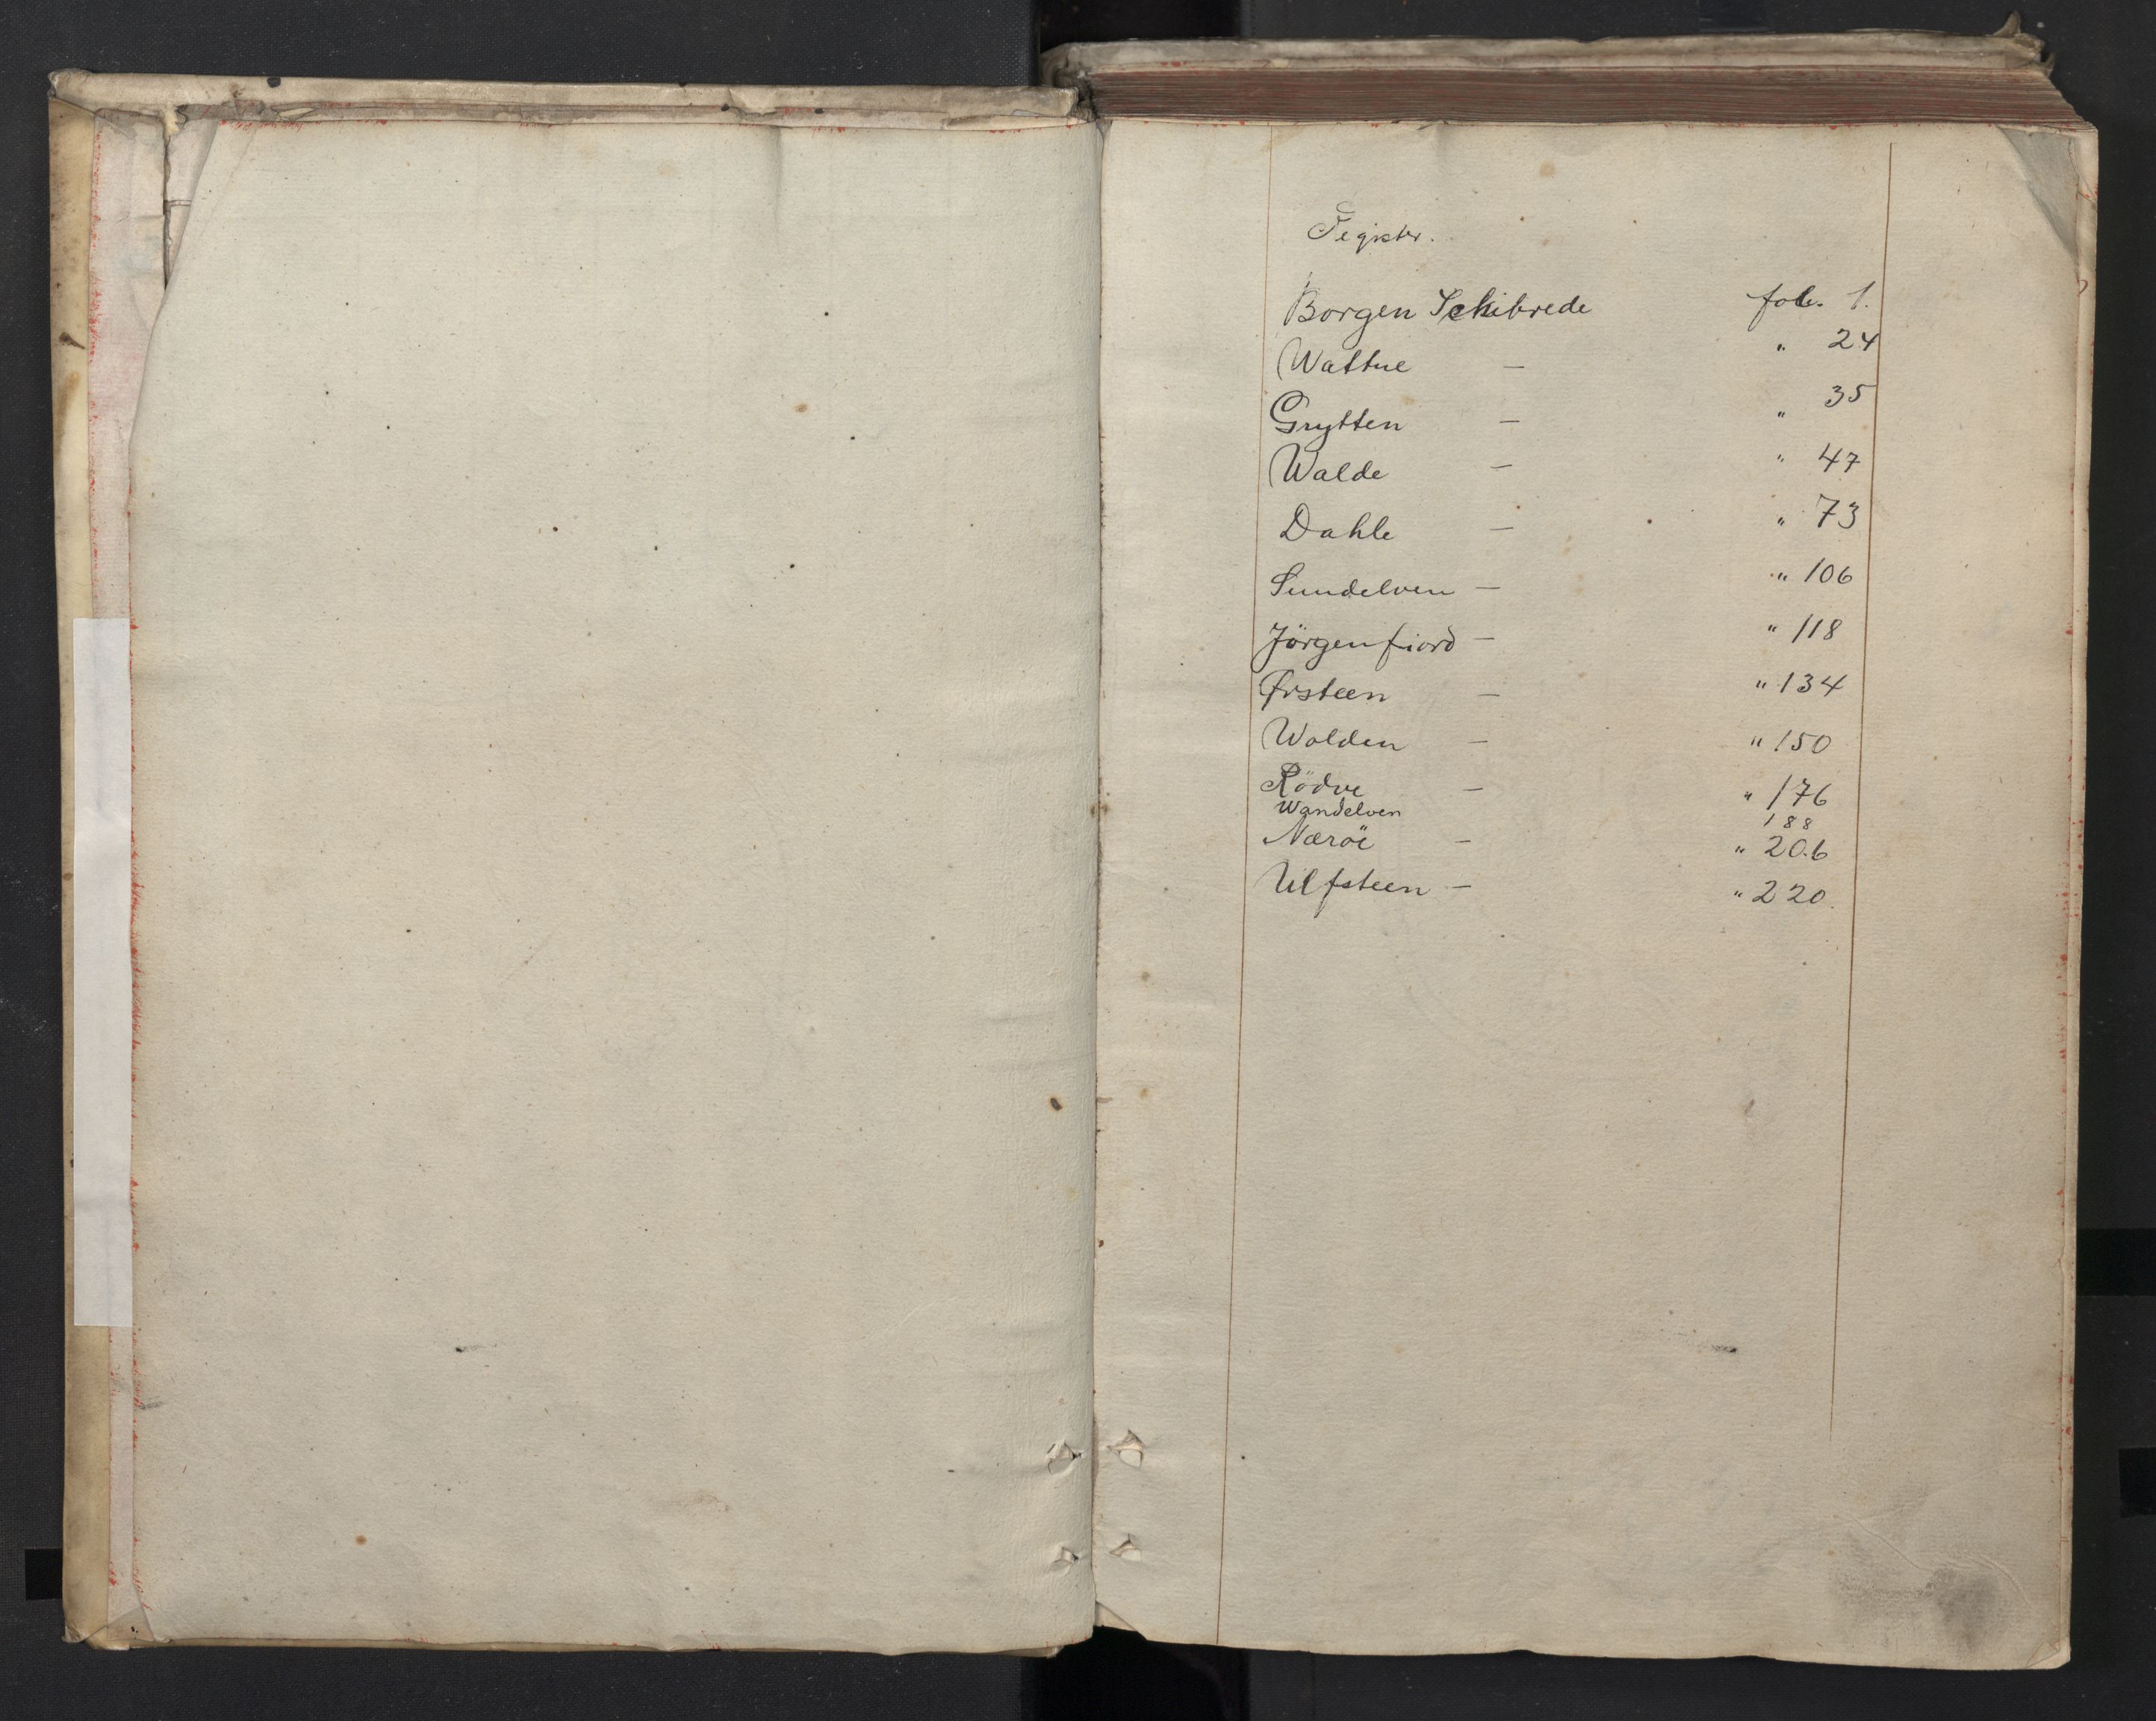 Register.
Borgen Schibrede fol. 1.
Wattne — " 24
Grytten — " 35
Walde — " 47
Dahle — " 73
Sundelven — " 106
Jörgenfiord — " 118
Ørsteen — " 134
Wolden — " 150
Rödve — " 176
Wandelven 188
Nærøe — " 206
Ulfsteen — " 220.